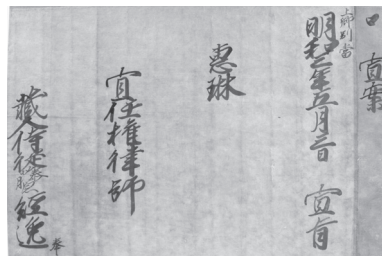 口 宣案
上卿 別當
明和二年五月三日 宣旨
惠琳
宜任權律師
藏人侍從藤原經逸 奉